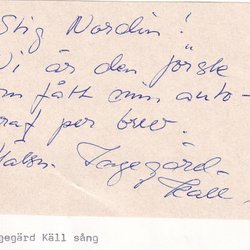 Stig Nordin!
Ni är den förste
om fått min auto-
raf per brev.
Hälsn. Ingegärd
Käll.
gegärd Käll sång